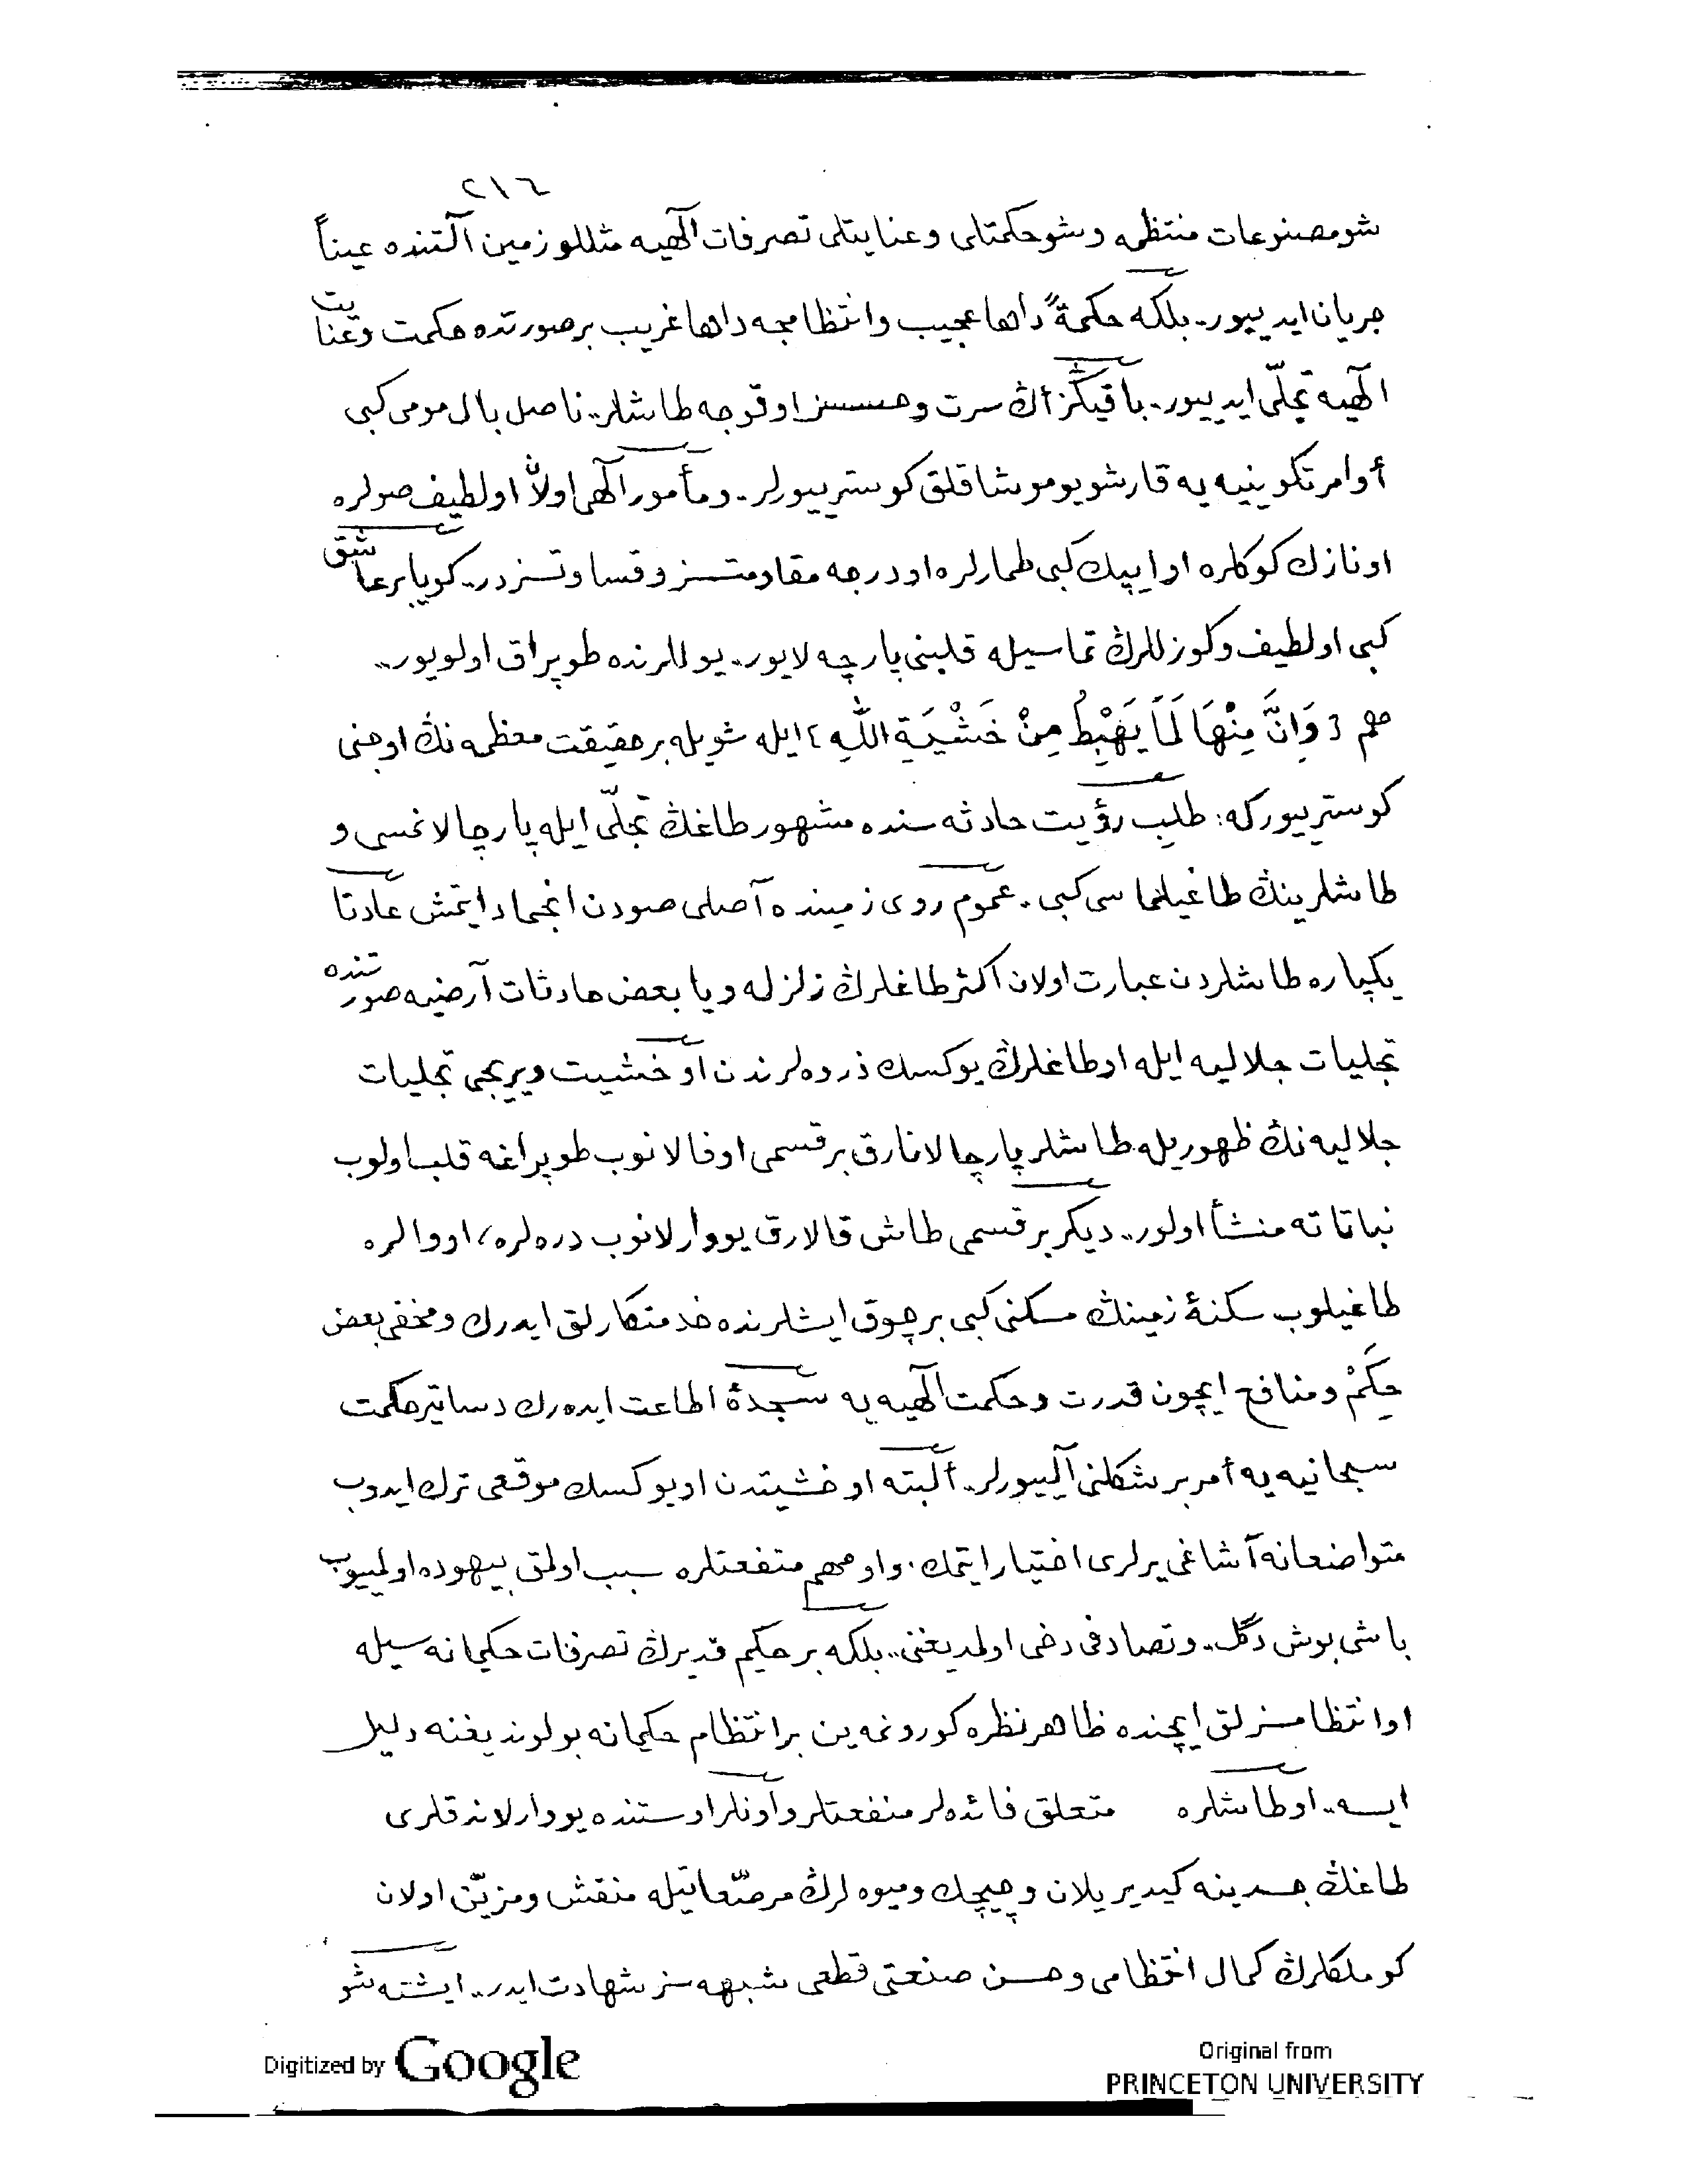 ٢١٦
شو مصنوعات منتظمه و شو حكمتلى و عنايتلى تصرفات الٓهيه مثللو زمين آلتنده عيناً
جريان ايدييور.. بلكه حكمةً داها عجيب و انتظامجه داها غريب بر صورتده حكمت و عنايت
الٓهيه تجلّى ايدييور.. باقيڭز أڭ سرت و حسسز او قوجه طاشلر.. ناصل بال مومى كبى
أوامر تكوينيه يه قارشو يوموشاقلق كوسترييورلر.. و مأمور الٓهى اولاڭ او لطيف صولره
او نازك كوكلره او ايپك كبى طمارلره او درجه مقاومتسز و قساوتسزدر.. كويا بر عاشق
كبى او لطيف و كوزللرڭ تماسيله قلبنى پارچه لايور.. يوللرنده طوپراق اولويور..
هم ﴿ وَاِنَّ مِنْهَا لَمَا يَهْبِطُ مِنْ خَشْيَةِ اللّٰهِ ﴾ ايله شويله بر حقيقت معظمه نڭ اوجنى
كوسترييوركه: طلب رؤيت حادثه سنده مشهور طاغڭ تجلّى ايله پارچالانمسى و
طاشلرينڭ طاغيلماسى كبى. عموم روى زمينده آصلى صودن انجماد ايتمش عادتا
يكپاره طاشلردن عبارت اولان اكثر طاغلرڭ زلزله و يا بعض حادثات آرضيه صورتنده
تجليات جلاليه ايله او طاغلرڭ يوكسك ذروه لرندن او خشيت ويريجى تجليات
جلاليه نڭ ظهوريله طاشلر پارچالانارق بر قسمى اوفالانوب طوپراغه قلب اولوب
نباتاته منشأ اولور.. ديكر بر قسمى طاش قالارق يووارلانوب دره لره، اووالره
طاغيلوب سكنۀ زمينڭ مسكنى كبى بر چوق ايشلرنده خدمتكارلق ايدرك و مخفى بعض
حِكَمْ و منافع ايچون قدرت و حكمت الٓهيه يه سجدۀ اطاعت ايده رك دساتير حكمت
سبحانيه يه أمربر شكلنى آلييورلر.. ألبته او خشيتدن او يوكسك موقعى ترك ايدوب
متواضعانه آشاغى يرلرى اختيار ايتمك. و او مهم منفعتلره سبب اولمق بيهوده اولمييوب
باشى بوش دڭل.. و تصادفى دخى اولمديغنى.. بلكه بر حكيم قديرڭ تصرفات حكيمانه سيله
او انتظامسزلق ايچنده ظاهر نظره كورونمه ين بر انتظام حكيمانه بولونديغنه دليل
ايسه.. او طاشلره متعلق فائده لر منفعتلر و اونلر اوستنده يووارلاندقلرى
طاغڭ جسدينه كيديريلان و چيچك و ميوه لرڭ مرصّعاتيله منقش و مزيّن اولان
كوملكلرڭ كمال انتظامى و حسن صنعتى قطعى شبهه سز شهادت ايدر.. ايشته شو
Digitized by Google
Original from
PRINCETON UNIVERSITY